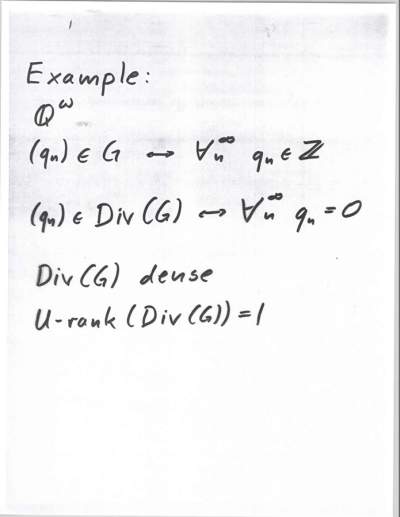 Example:
ℚ^ω
(qₙ) ∈ G ↔ ∀ₙ^∞ qₙ ∈ ℤ
(qₙ) ∈ Div(G) ↔ ∀ₙ^∞ qₙ = 0
Div(G) dense
U-rank (Div(G)) = 1